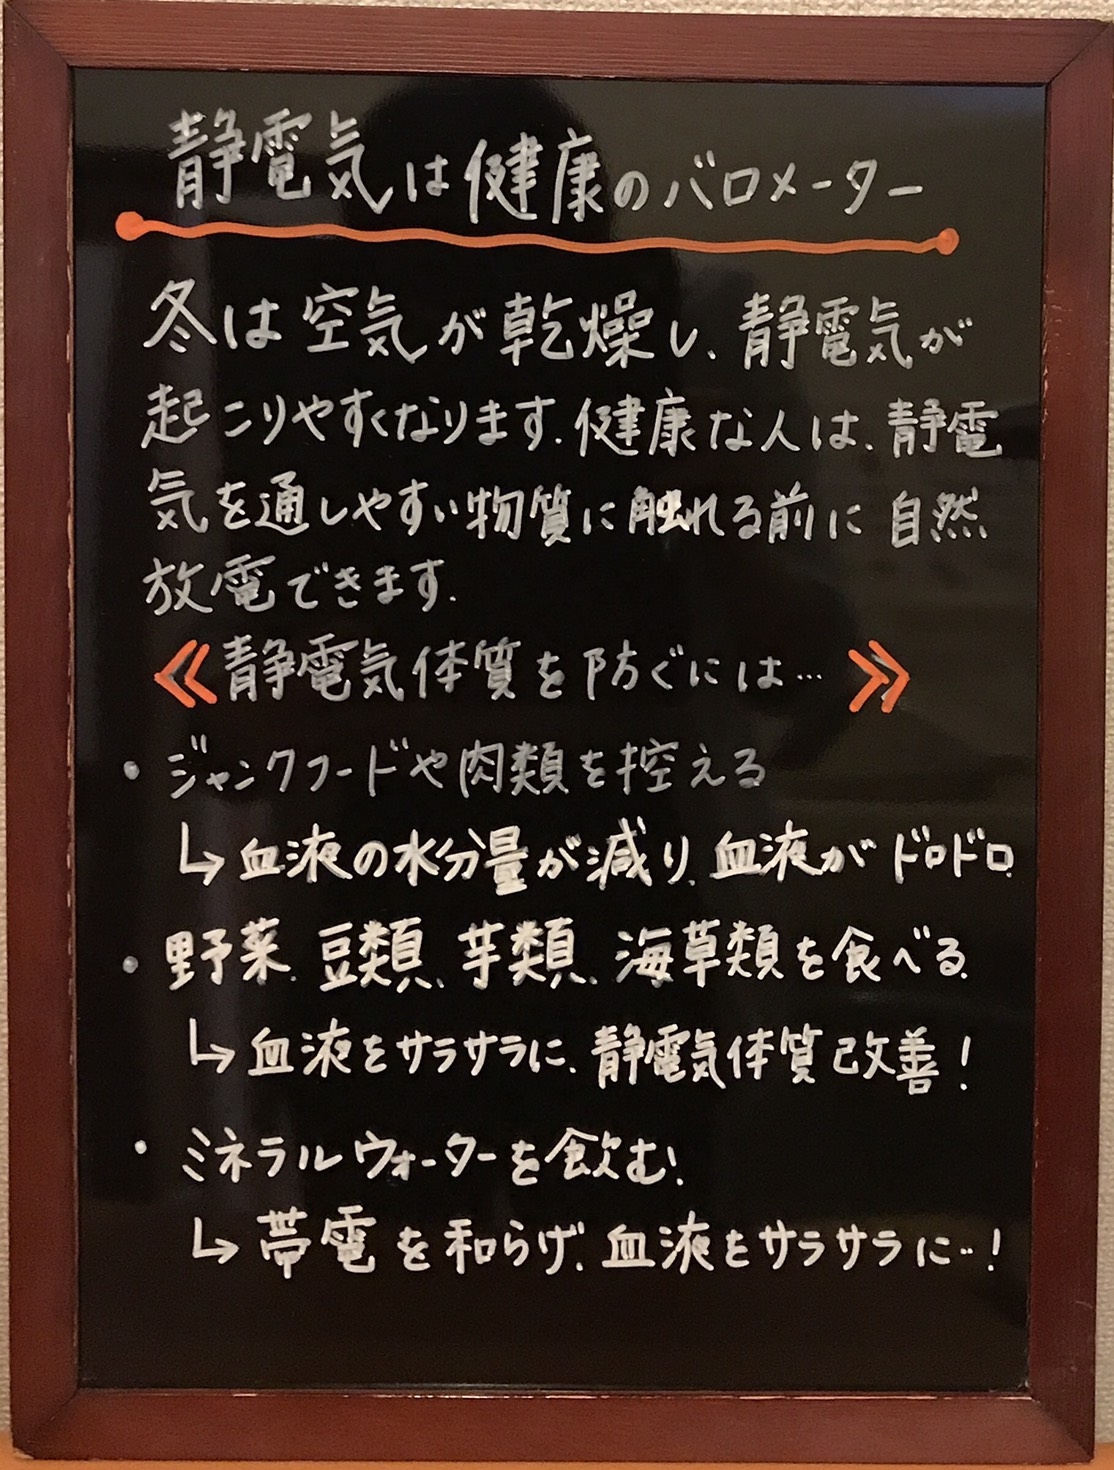 静電気は健康のバロメーター
冬は空気が乾燥し、静電気が
起こりやすくなります。健康な人は、静電
気を通しやすい物質に触れる前に自然
放電できます。
《静電気体質を防ぐには…》
・ジャンクフードや肉類を控える
↳血液の水分量が減り、血液がドロドロ
・野菜、豆類、芋類、海草類を食べる
↳血液をサラサラに、静電気体質改善!
・ミネラルウォーターを飲む!
↳帯電を和らげ、血液をサラサラに…!